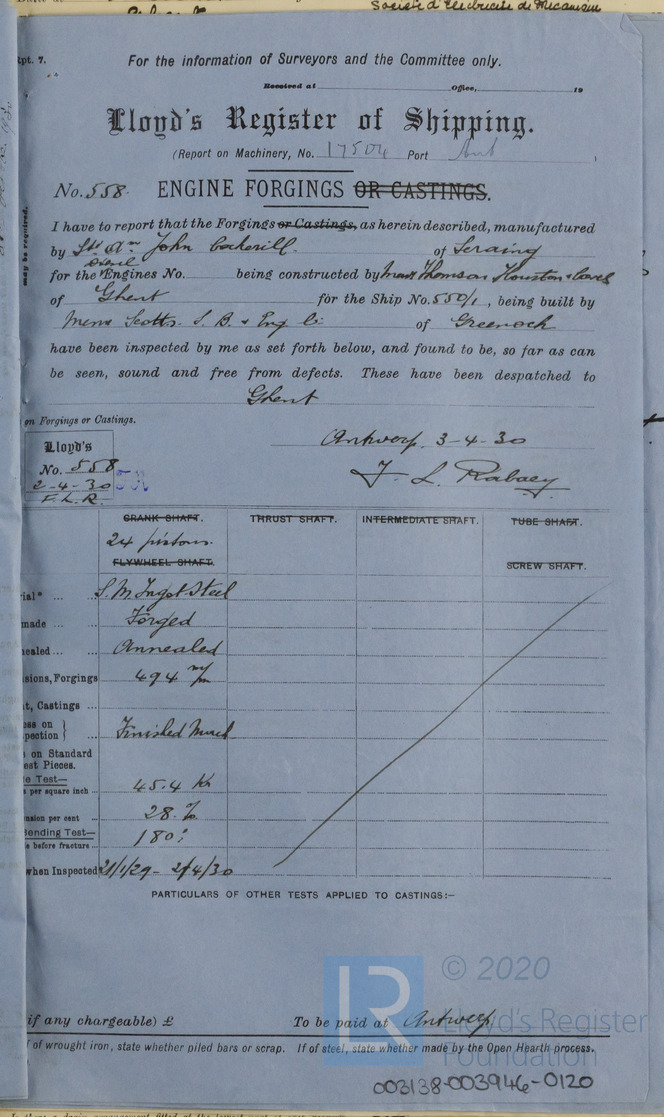 Société d'Electricité & de Mécanique
Rpt. 7.
For the information of Surveyors and the Committee only.
Received at Office, 19
Lloyd's Register of Shipping.
(Report on Machinery, No. 17504 Port Ant )
No. 558. ENGINE FORGINGS OR CASTINGS.
may be required.
I have to report that the Forgings or Castings, as herein described, manufactured
by Sté Ame John Cockerill of Seraing
Diesel
for the Engines No. being constructed by Messrs Thomson Houston & Carels
of Ghent for the Ship No. 550/1, being built by
Messrs Scotts. S. B. & Eng Co of Greenock
have been inspected by me as set forth below, and found to be, so far as can
be seen, sound and free from defects. These have been despatched to
Ghent
on Forgings or Castings.
Antwerp 3-4-30
Lloyd's
No. 558
2-4-30
F. L. R.
F. L. Rabaey
CRANK SHAFT. THRUST SHAFT. INTERMEDIATE SHAFT. TUBE SHAFT.
24 pistons.
FLYWHEEL SHAFT. SCREW SHAFT.
ial* ... ... S. M. Ingot Steel
made ... ... Forged
ealed ... ... Annealed
sions, Forgings 494 m/m
t, Castings ...
ess on
pection Finished Mach
on Standard
est Pieces.
e Test—
per square inch ... 45.4 Ko
nsion per cent ... 28 %
Bending Test—
e before fracture ... 180°
when Inspected 21/1/29 - 2/4/30
PARTICULARS OF OTHER TESTS APPLIED TO CASTINGS:—
© 2020
if any chargeable) £ To be paid at Antwerp
Lloyd's Register
Foundation
of wrought iron, state whether piled bars or scrap. If of steel, state whether made by the Open Hearth process.
003138-003946-0120